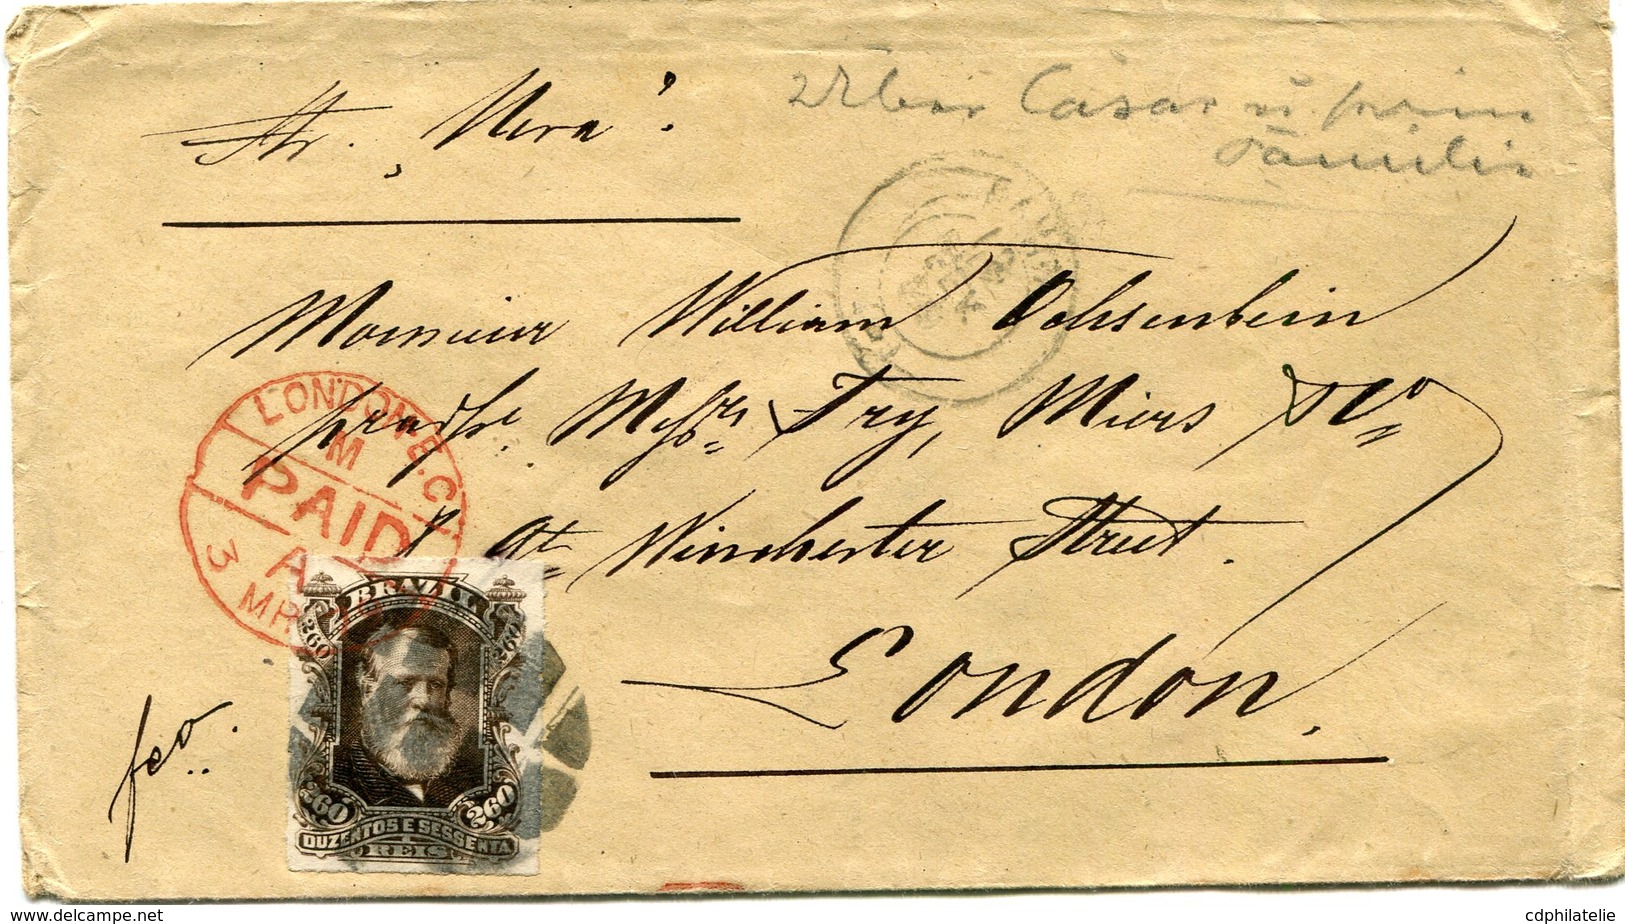 Str. „Neva".
Cäsar
Familie
Monsieur William Ochsenbein
pr adsse Messrs Fry, Miers & Co
8 Gt Winchester Street.
London.
fco.
LONDON E.C
M
PAID
A
3 MR
BRAZIL
260 260
260 260
DUZENTOS E SESSENTA
REIS
delcampe.net
cdphilatelie